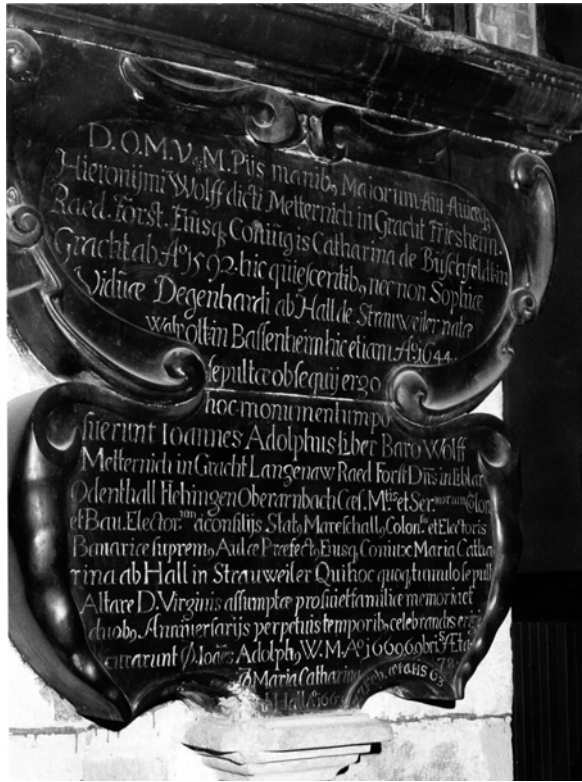 D.O.M.V.&.M. Piis manib9 Maiorum Aui Auiæq3
Hieronijmi Wolff dicti Metternich in Gracht Friesheim
Raed. Forst. Eiusq3 Coniugis Catharina de Buschfeldt in
Gracht ab Aº 1592 hic quiescentib9, nec non Sophiæ
Viduæ Degenhardi ab Hall de Strauweiler natæ
Walpott in Bassenheim hic etiam Aº 1644
sepultæ obsequij ergo
hoc monumentum po
suerunt Ioannes Adolphus Liber Baro Wolff
Metternich in Gracht Langenaw Raed Forst Dns in Liblar
Odenthall Flehingen Oberarnbach Cæs. M.tis et Ser. Colon
et Bau. Elector. a consilijs Stat9 Mareschall9 Colon. et Electoris
Bauaricæ suprem9 Aulæ Præfect9 Eiusq3 Coniux Maria Catha
rina ab Hall in Strauweiler Qui hoc quoq3 tumulo sepulti
Altare D. Virginis assumptæ pro sui et familiæ memoria et
duob9 Anniuersarijs perpetuis temporib9 celebrandis erigi
curarunt Ioães Adolph9 W.M. Aº 1669 9bris Æta
78
Maria Catharina 7 Feb. ætatis 63
ab Hall